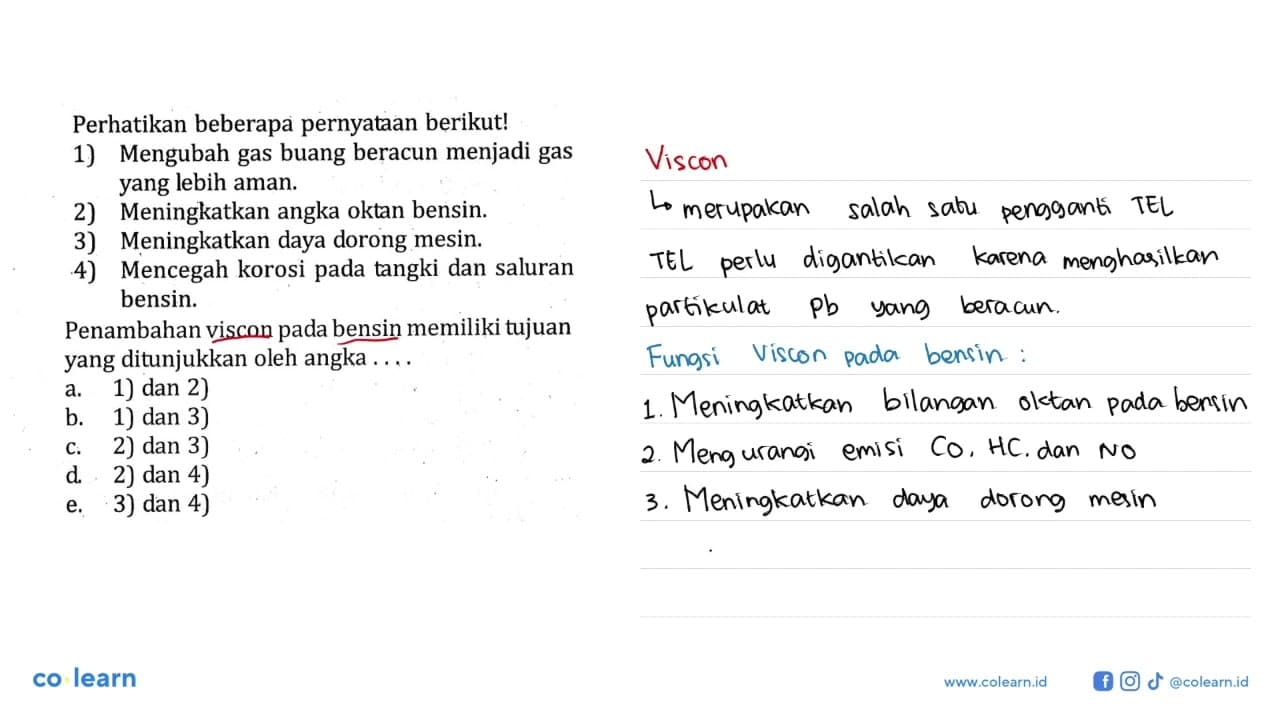 Perhatikan beberapa pernyataan berikut!
1) Mengubah gas buang beracun menjadi gas
yang lebih aman.
2) Meningkatkan angka oktan bensin.
3) Meningkatkan daya dorong mesin.
4) Mencegah korosi pada tangki dan saluran
bensin.
Penambahan viscon pada bensin memiliki tujuan
yang ditunjukkan oleh angka ....
a. 1) dan 2)
b. 1) dan 3)
c. 2) dan 3)
d. 2) dan 4)
e. 3) dan 4)
Viscon
↳ merupakan salah satu pengganti TEL
TEL perlu digantikan karena menghasilkan
partikulat Pb yang beracun.
Fungsi Viscon pada bensin :
1. Meningkatkan bilangan oktan pada bensin
2. Mengurangi emisi CO, HC. dan NO
3. Meningkatkan daya dorong mesin
co learn
www.colearn.id
@colearn.id